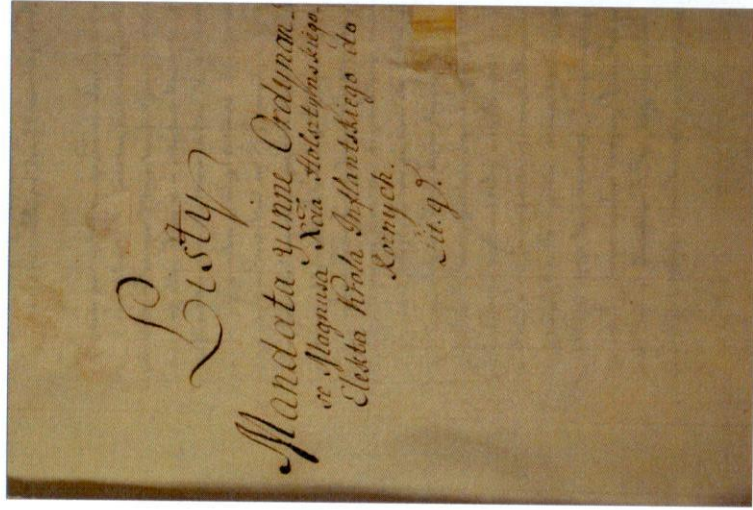 Listy
Mandata y inne Ordynan
Magnusa Xcia Holsztynskiego
Elekta Krola Inflantskiego do
Roznych.